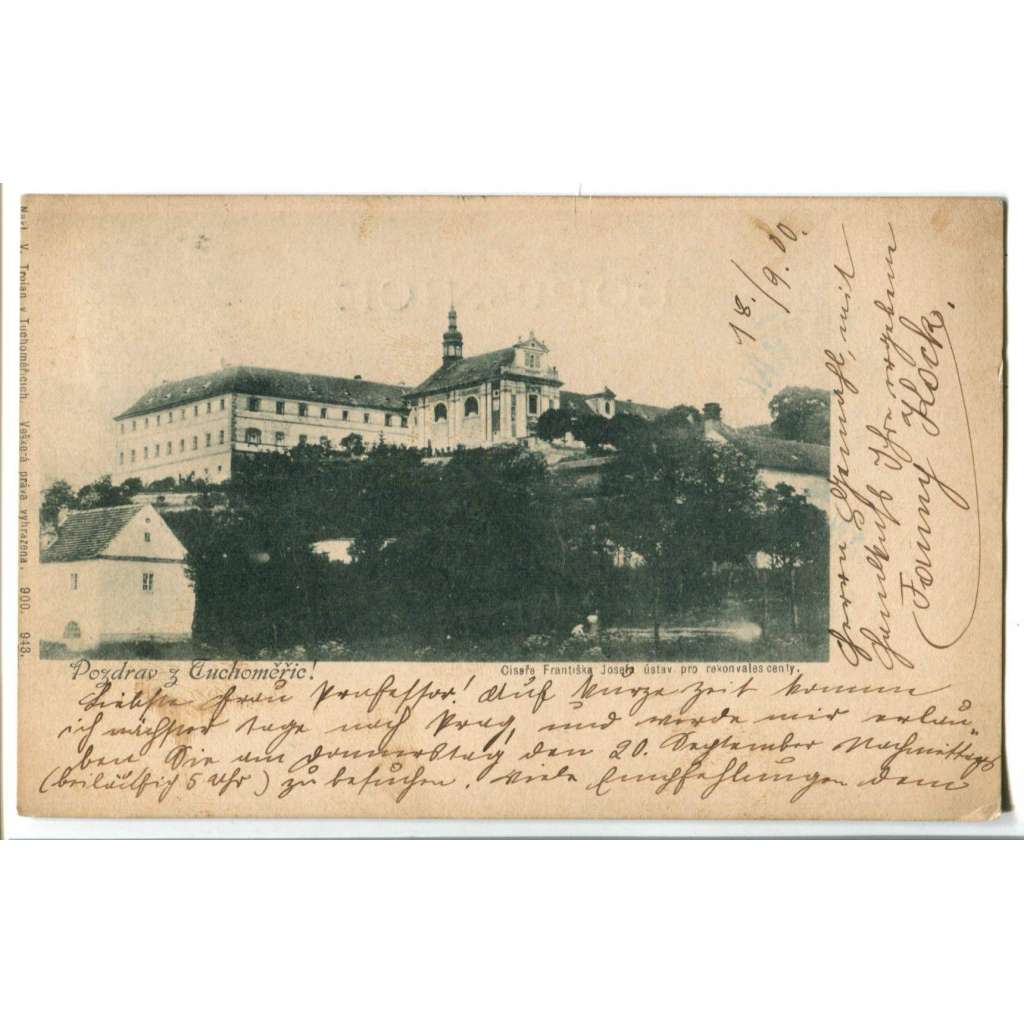 Nákl. V. Trojan v Tuchoměřicích Veškerá práva vyhrazena. 900. 943.
18./9.00.
Pozdrav z Tuchoměřic!
Císaře Františka Josefa ústav pro rekonvalescenty.
Liebste Frau Professor! Auf kurze Zeit komme
ich nächster Tage nach Prag, und werde mir erlau„
ben Sie am Donnerstag, den 20. September Nachmittags
(beiläufig 5 Uhr) zu besuchen. Viele Empfehlungen dem
Herrn Gemahl, mit
Handkuß Ihre ergebene
Fanny Klock.